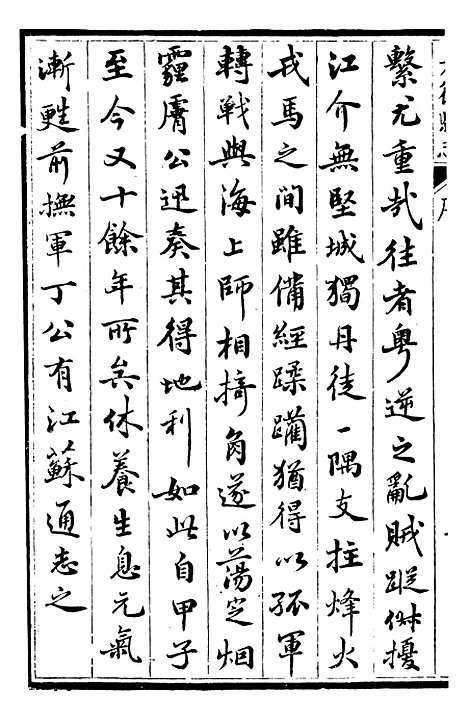 繫尤重哉往者粵逆之亂賊蹤俶擾
江介無堅城獨丹徒一隅支拄烽火
戎馬之間雖備經蹂躪猶得以孤軍
轉戰與海上師相掎角遂以蕩定烟
霾膚公迅奏其得地利如此自甲子
至今又十餘年所矣休養生息元氣
漸甦前撫軍丁公有江蘇通志之